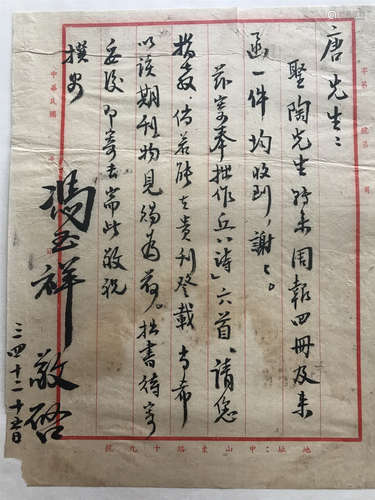 唐先生：
聖陶先生转来周報四冊及来
函一件均收到，謝〻。
茲寄奉拙作丘八诗」六首，请您
指教倘若能在貴刊登載尚希
以该期刊物見賜為荷。拙書待寄
後即寄去耑此敬祝
撰安
馮玉祥敬啓
三四十二十
中華民國
字第
地址：中山東路十九號